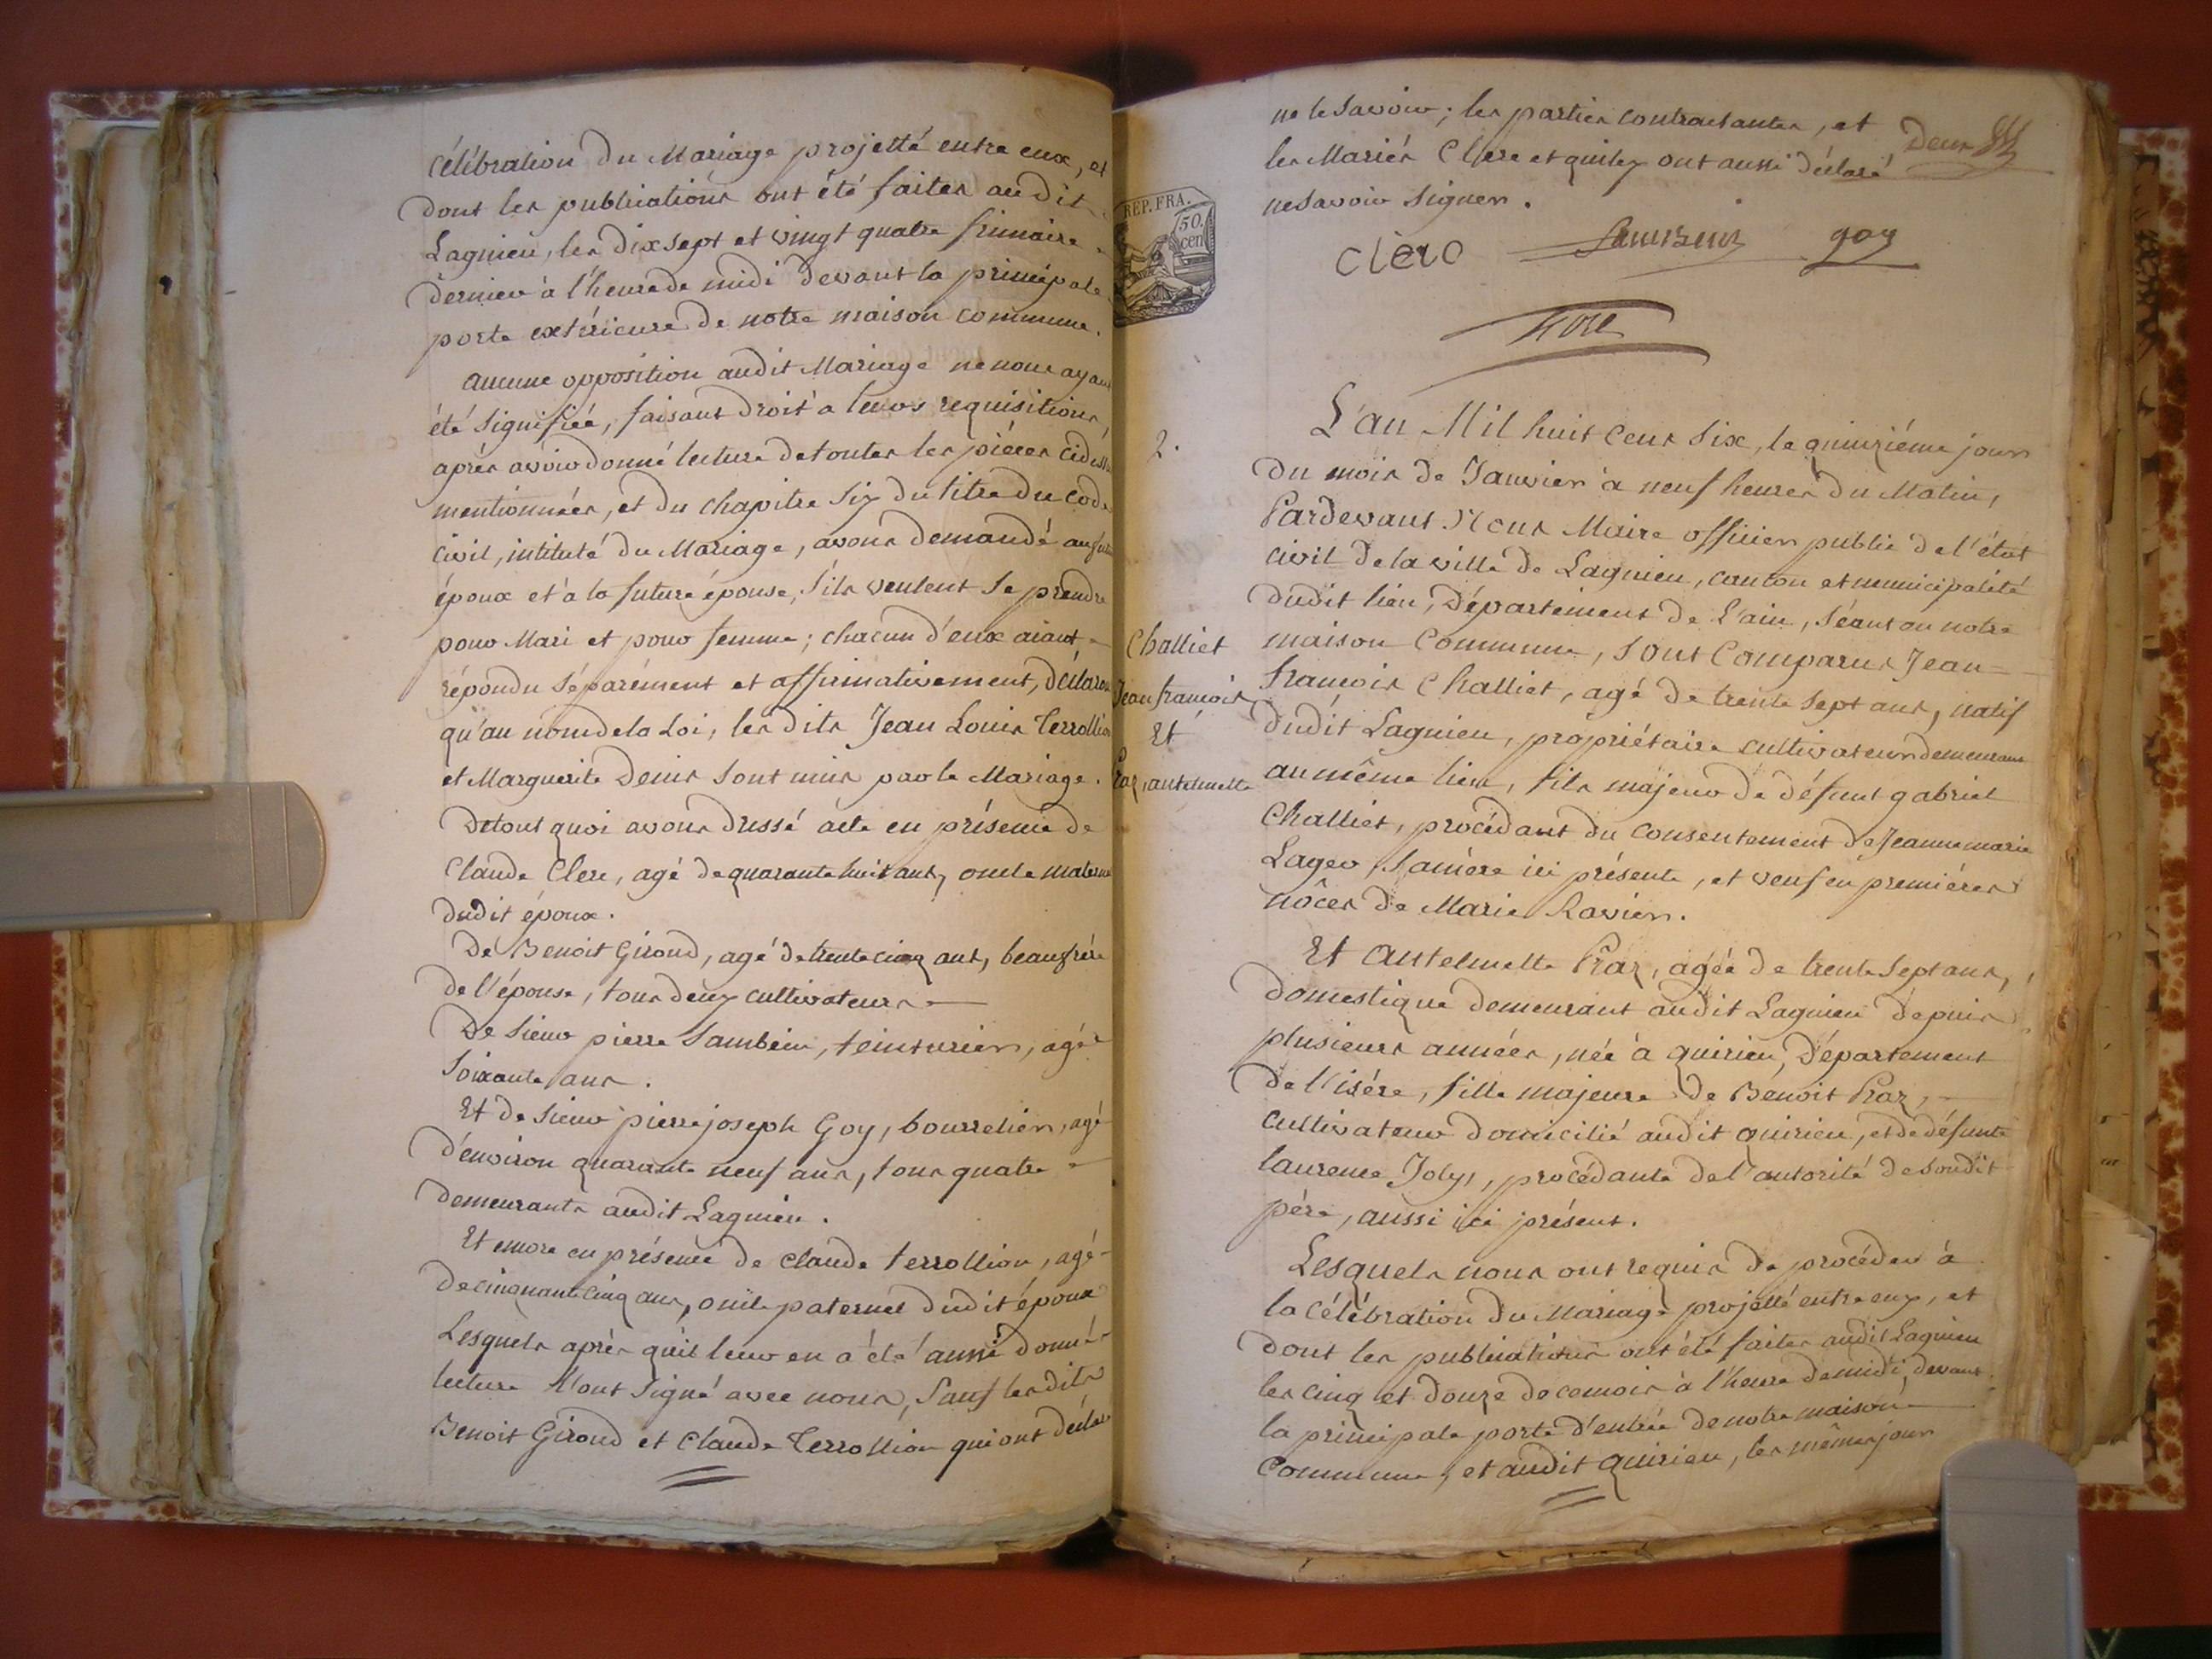 célébration du Mariage projetté entre eux, et
dont les publications ont été faites audit
Lagnieu, les dix sept et vingt quatre frimaire
dernier à l'heure de midi devant la principale
porte extérieure de notre maison commune.
aucune opposition audit Mariage ne nous ayant
été signifiée, faisant droit a leurs requisitions,
après avoir donné lecture de toutes les pièces cidessus
mentionnées, et du chapitre six du titre du code
civil, intitulé du Mariage, avons demandé au futur
époux et à la future épouse, s'ils veulent se prendre
pour Mari et pour femme; chacun d'eux aiant
répondu séparément et affirmativement, déclarons
qu'au nom de la Loi, les dits Jean Louis Terrollion
et Marguerite Denis sont unis par le Mariage.
De tout quoi avons dressé acte en présence de
Claude Clere, agé de quarante huit ans, oncle maternel
dudit époux.
De Benoit Giroud, agé de trente cinq ans, beaufrére
de l'épouse, tous deux cultivateurs
De sieur pierre Sambein, teinturier, agé
soixante ans.
Et de sieur pierre joseph Goy, bourrelier, agé
d'environ quarante neuf ans, tous quatre
demeurants audit Lagnieu.
Et encore en présence de claude terrollion, agé
de cinquante cinq ans, oncle paternel dudit époux
Lesquels après qu'il leur en a été aussi donné
lecture l'ont signé avec nous, sauf les dits
Benoit Giroud et Claude Terrollion qui ont déclaré
REP. FRA.
50.
cen
ne le savoir; les parties contractantes, et
les Mariés Clere et quilz ont aussi déclaré
ne savoir signer.
Deux
Clero goy
2.
L'an Mil huit Cent six, le quinziéme jour
du mois de Janvier à neuf heures du Matin,
Pardevant Nous Maire officier public de l'état
civil de la ville de Lagnieu, canton et municipalité
dudit lieu, Département de l'ain, séant en notre
maison Commune, sont Comparus Jean
françois Challiet, agé de trente sept ans, natif
dudit Lagnieu, propriétaire cultivateur demeurant
au même lieu, fils majeur de défunt gabriel
Challiet, procédant du consentement de Jeanne marie
Lager, sa mère ici présente, et veuf en premiéres
nôces de Marie Ravier.
Challiet
Jean françois
Et
Praz, antelmette
Et Antelmette Praz, agée de trente sept ans,
domestique demeurant audit Lagnieu depuis
plusieurs années, née à quirieu, Département
de l'isére, fille majeure de Benoit Praz,
cultivateur domicilié audit quirieu, et de défunte
laurence Joly, procédante de l'autorité de soudit
pére, aussi ici présent.
Lesquels nous ont requis de procéder à
la célébration du Mariage projetté entre eux, et
dont les publications ont été faites audit Lagnieu
les cinq et douze de ce mois à l'heure de midi, devant
la principale porte d'entrée de notre maison
Commune, et audit quirieu, les mêmes jours